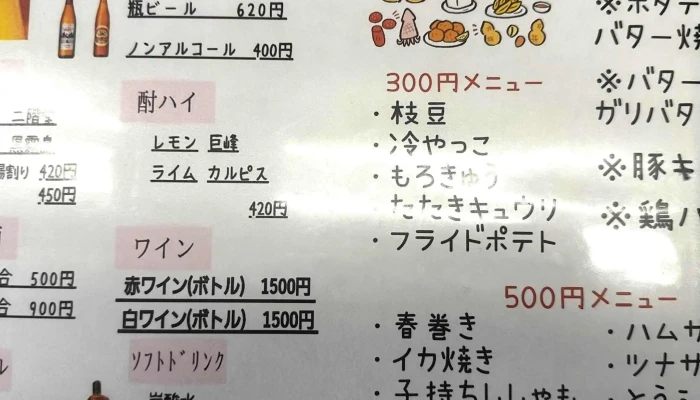 瓶ビール 620円
ノンアルコール 400円
酎ハイ
レモン 巨峰
ライム カルピス
420円
ワイン
赤ワイン(ボトル) 1500円
白ワイン(ボトル) 1500円
ソフトドリンク
炭酸水
二階堂
割り 420円
450円
合 500円
合 900円
300円メニュー
・枝豆
・冷やっこ
・もろきゅう
・たたきキュウリ
・フライドポテト
500円メニュー
・春巻き
・イカ焼き
・子持ちししゃも
・ハムサ
・ツナサ
バター焼
※バター
ガリバタ
※豚キ
※鶏ハ